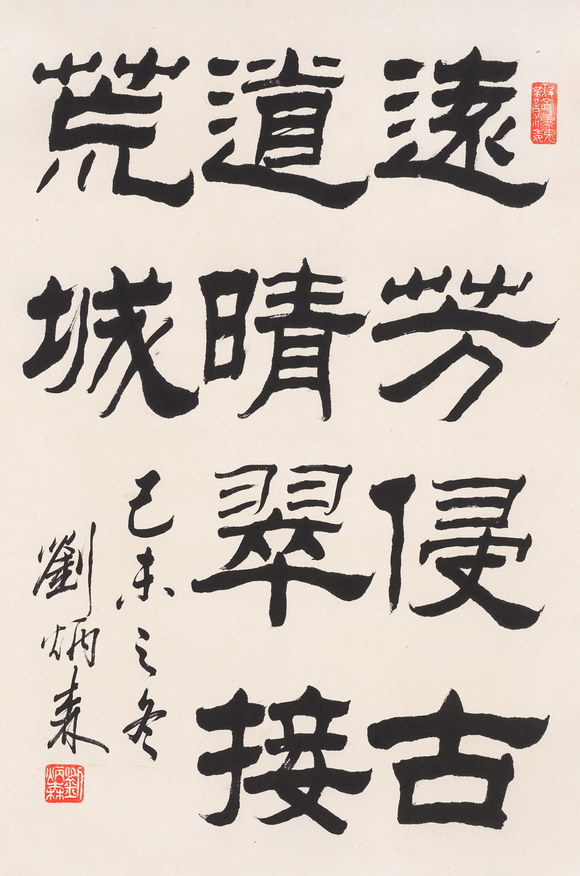 遠芳侵古
道晴翠接
荒城
己未之冬
劉炳森
劉炳森